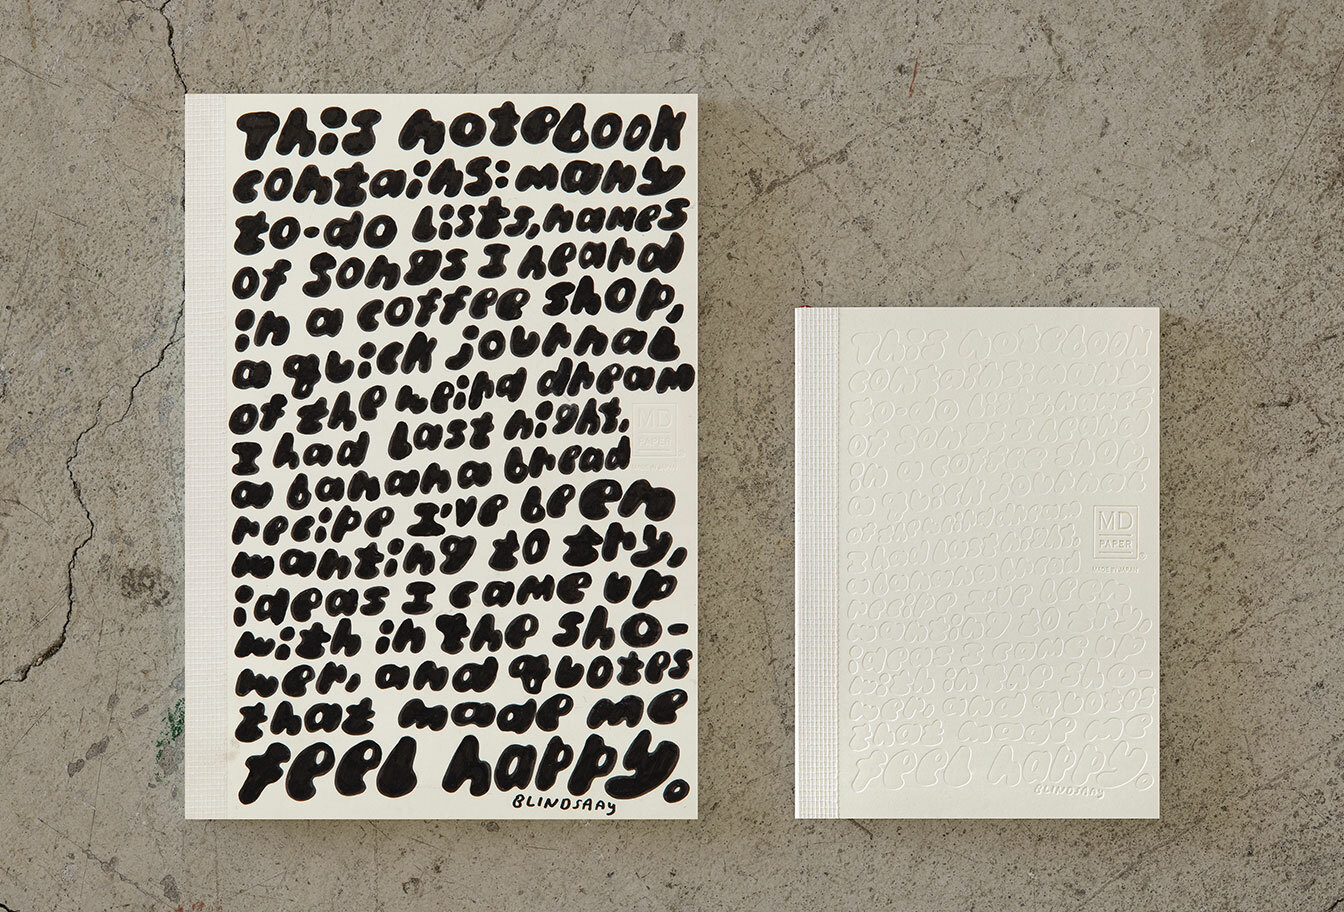 This notebook
contains: many
to-do lists, names
of songs I heard
in a coffee shop,
a quick journal
of the weird dream
I had last night,
a banana bread
recipe I've been
wanting to try,
ideas I came up
with in the sho-
wer, and quotes
that made me
feel happy.
BLINDSAAY
MD
PAPER
MADE IN JAPAN
This notebook
contains: many
to-do lists, names
of songs I heard
in a coffee shop,
a quick journal
of the weird dream
I had last night,
a banana bread
recipe I've been
wanting to try,
ideas I came up
with in the sho-
wer, and quotes
that made me
feel happy.
BLINDSAAY
MD
PAPER
®
MADE IN JAPAN